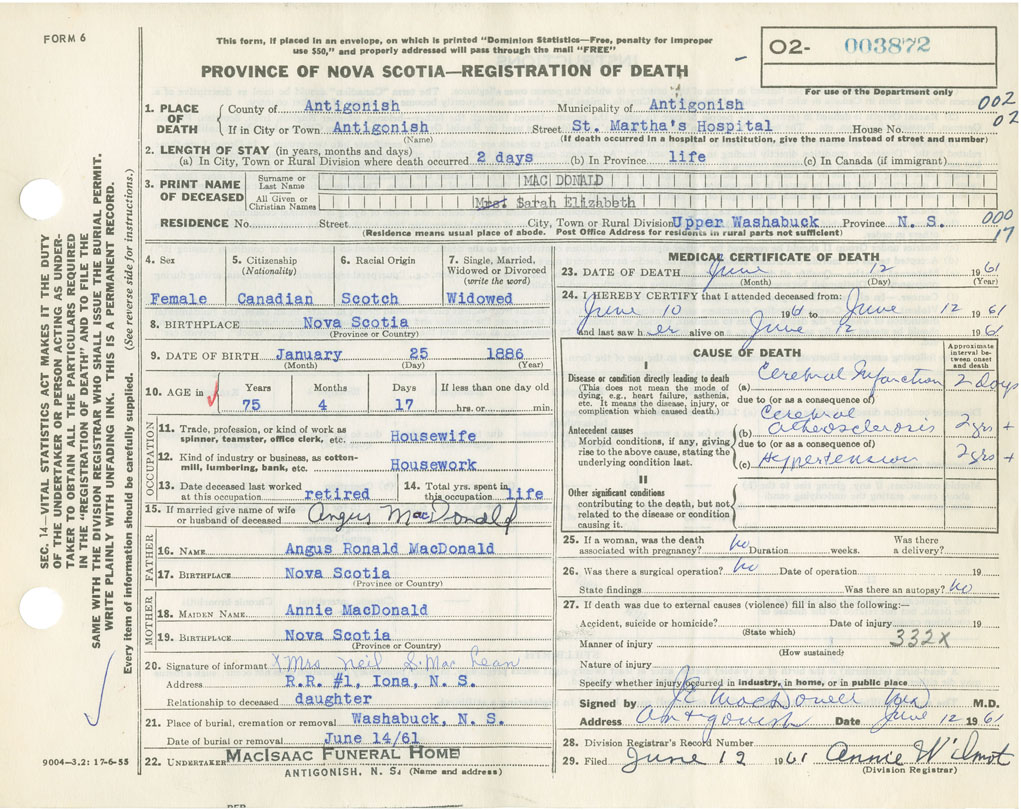 FORM 6
This form, if placed in an envelope, on which is printed "Dominion Statistics—Free, penalty for improper
use $50," and properly addressed will pass through the mail "FREE"
O2- 003872
For use of the Department only
PROVINCE OF NOVA SCOTIA—REGISTRATION OF DEATH
002
02
1. PLACE OF DEATH County of Antigonish Municipality of Antigonish
If in City or Town Antigonish Street St. Martha's Hospital House No.
(Name) (If death occurred in a hospital or institution, give the name instead of street and number)
2. LENGTH OF STAY (in years, months and days)
(a) In City, Town or Rural Division where death occurred 2 days (b) In Province life (c) In Canada (if immigrant)
3. PRINT NAME OF DECEASED
Surname or Last Name MAC DONALD
All Given or Christian Names Mrs. Sarah Elizabeth
000
17
RESIDENCE No. Street City, Town or Rural Division Upper Washabuck Province N. S.
(Residence means usual place of abode. Post Office Address for residents in rural parts not sufficient)
4. Sex Female
5. Citizenship (Nationality) Canadian
6. Racial Origin Scotch
7. Single, Married, Widowed or Divorced (write the word) Widowed
8. BIRTHPLACE Nova Scotia
(Province or Country)
9. DATE OF BIRTH January 25 1886
(Month) (Day) (Year)
10. AGE in Years Months Days If less than one day old
75 4 17 hrs. or min.
OCCUPATION
11. Trade, profession, or kind of work as spinner, teamster, office clerk, etc. Housewife
12. Kind of industry or business, as cotton-mill, lumbering, bank, etc. Housework
13. Date deceased last worked at this occupation retired
14. Total yrs. spent in this occupation life
15. If married give name of wife or husband of deceased Angus MacDonald
FATHER
16. NAME Angus Ronald MacDonald
17. BIRTHPLACE Nova Scotia
(Province or Country)
MOTHER
18. MAIDEN NAME Annie MacDonald
19. BIRTHPLACE Nova Scotia
(Province or Country)
20. Signature of informant X Mrs Neil S. MacLean
Address R.R. #1, Iona, N. S.
Relationship to deceased daughter
21. Place of burial, cremation or removal Washabuck, N. S.
Date of burial or removal June 14/61
22. UNDERTAKER MACISAAC FUNERAL HOME
ANTIGONISH, N. S. (Name and address)
MEDICAL CERTIFICATE OF DEATH
23. DATE OF DEATH June 12 1961
(Month) (Day) (Year)
24. I HEREBY CERTIFY that I attended deceased from:
June 10 1961 to June 12 1961
and last saw her alive on June 12 1961
CAUSE OF DEATH
Approximate interval between onset and death
I
Disease or condition directly leading to death
(This does not mean the mode of dying, e.g., heart failure, asthenia, etc. It means the disease, injury, or complication which caused death.)
(a) Cerebral Infarction 2 days
due to (or as a consequence of)
Antecedent causes
Morbid conditions, if any, giving rise to the above cause, stating the underlying condition last.
(b) Cerebral atherosclerosis 2 yrs +
due to (or as a consequence of)
(c) Hypertension 2 yrs +
II
Other significant conditions
contributing to the death, but not related to the disease or condition causing it.
25. If a woman, was the death associated with pregnancy? No Duration weeks. Was there a delivery?
26. Was there a surgical operation? No Date of operation 19
State findings Was there an autopsy? No
27. If death was due to external causes (violence) fill in also the following:—
Accident, suicide or homicide? Date of injury 19
(State which)
Manner of injury 332X
(How sustained)
Nature of injury
Specify whether injury occurred in industry, in home, or in public place
Signed by MacDonell MD M.D.
Address Antigonish Date June 12 1961
28. Division Registrar's Record Number
29. Filed June 12 1961 Annie Wilmot
(Division Registrar)
SEC. 14—VITAL STATISTICS ACT MAKES IT THE DUTY
OF THE UNDERTAKER OR PERSON ACTING AS UNDER-
TAKER TO OBTAIN ALL THE PARTICULARS REQUIRED
IN THE "REGISTRATION OF DEATH" AND TO FILE THE
SAME WITH THE DIVISION REGISTRAR WHO SHALL ISSUE THE BURIAL PERMIT.
WRITE PLAINLY WITH UNFADING INK. THIS IS A PERMANENT RECORD.
Every item of information should be carefully supplied. (See reverse side for instructions.)
9004—3.2: 17-6-55